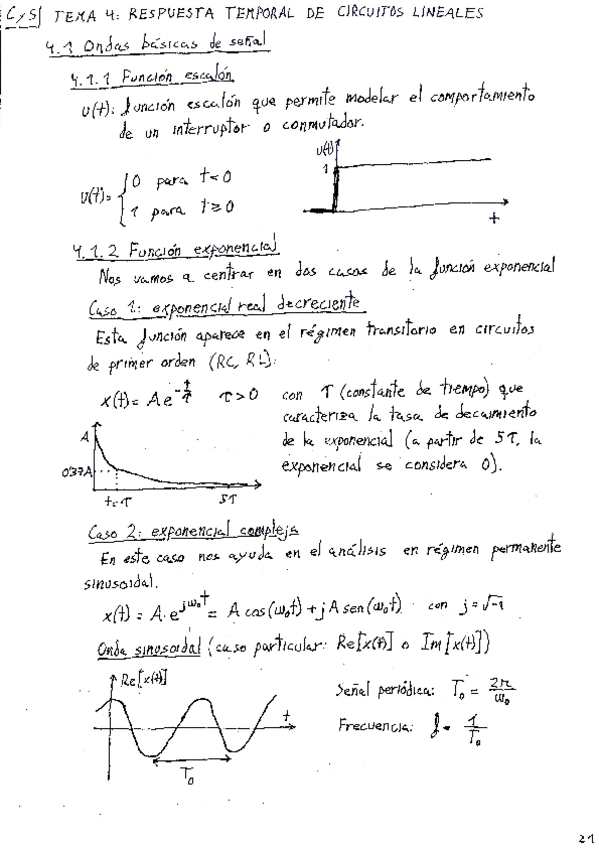 CyS TEMA 4: RESPUESTA TEMPORAL DE CIRCUITOS LINEALES
4.1 Ondas básicas de señal
4.1.1 Función escalón
u(t): función escalón que permite modelar el comportamiento
de un interruptor o conmutador.
u(t)= { 0 para t<0
1 para t≥0
u(t)
1
t
4.1.2 Función exponencial
Nos vamos a centrar en dos casos de la función exponencial
Caso 1: exponencial real decreciente
Esta función aparece en el régimen transitorio en circuitos
de primer orden (RC, RL).
x(t)= A e^-t/τ τ>0 con τ (constante de tiempo) que
caracteriza la tasa de decaimiento
de la exponencial (a partir de 5τ, la
exponencial se considera 0).
A
0'37A
t=τ 5τ
Caso 2: exponencial compleja
En este caso nos ayuda en el análisis en régimen permanente
sinusoidal.
x(t) = A·e^jω₀t = A cos(ω₀t) + j A sen(ω₀t) con j=√-1
Onda sinusoidal (caso particular: Re[x(t)] o Im[x(t)])
Re[x(t)]
t
T₀
Señal periódica: T₀ = 2π/ω₀
Frecuencia: f = 1/T₀
21